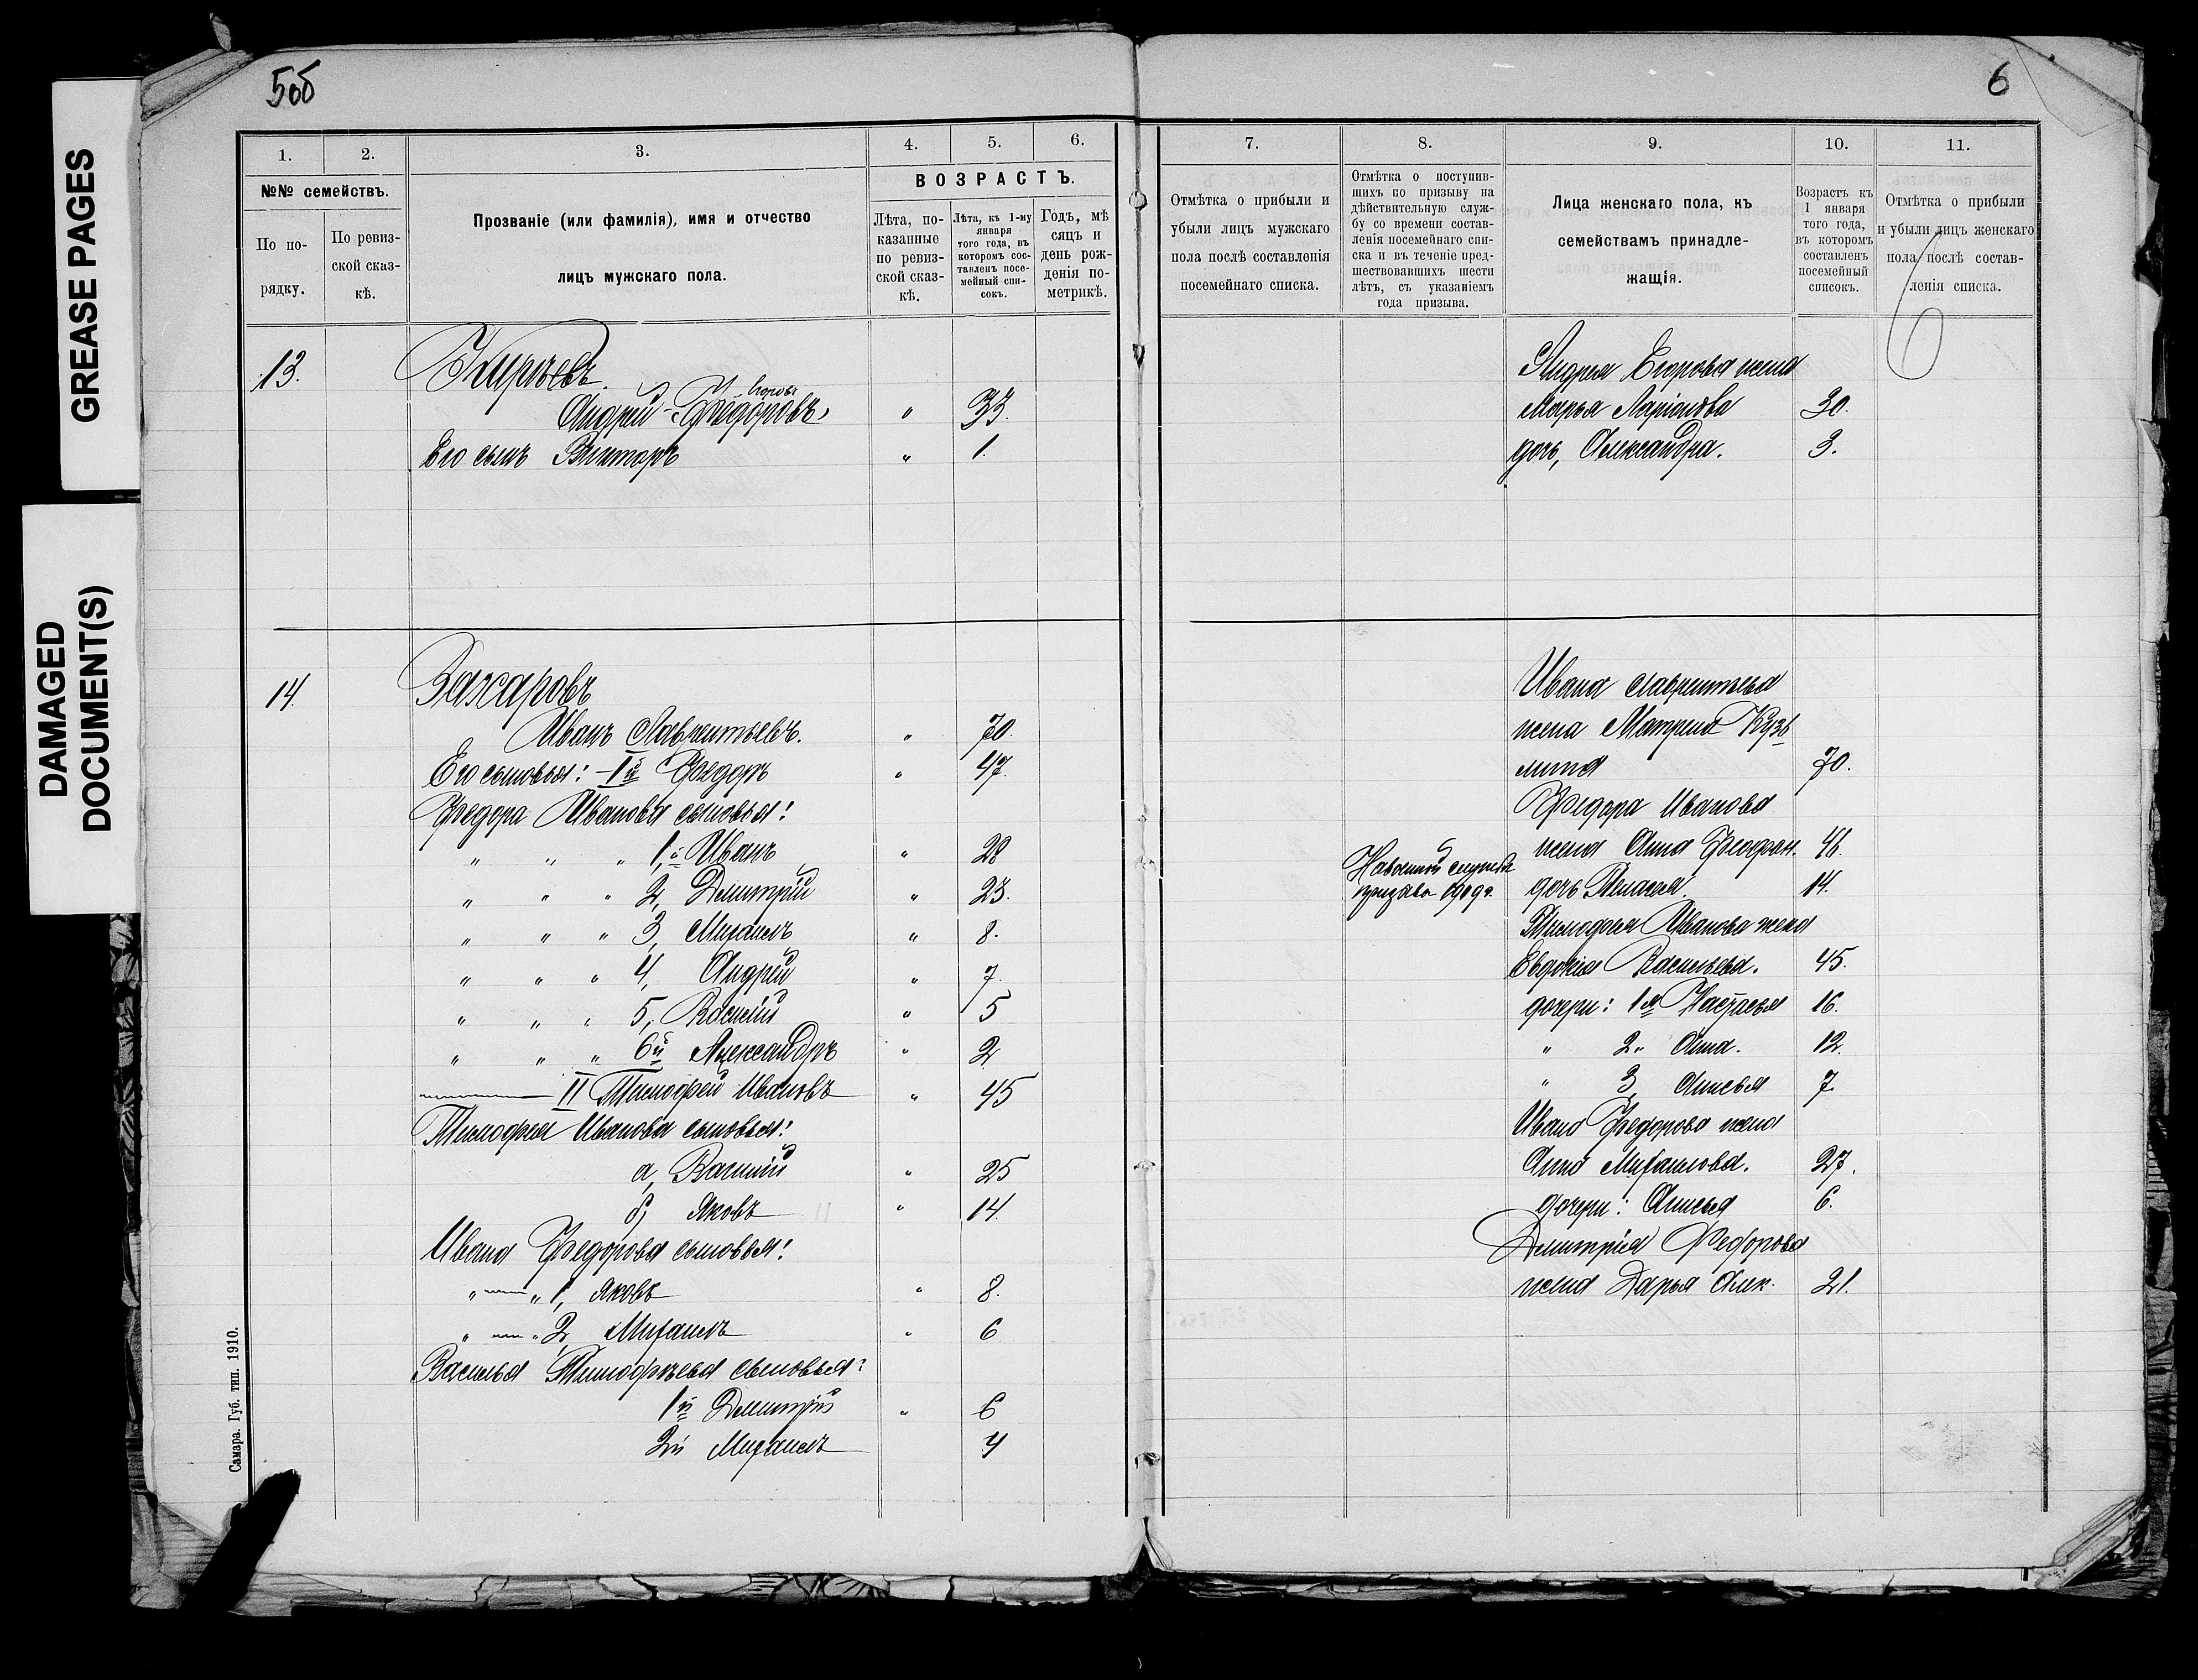 GREASE PAGES
DAMAGED
DOCUMENT(S)
5об
1.
2.
3.
4.
5.
6.
№№ семействъ.
По по-
рядку.
По ревиз-
ской сказ-
кѣ.
Прозваніе (или фамилія), имя и отчество
лицъ мужскаго пола.
ВОЗРАСТЪ.
Лѣта, по-
казанные
по ревиз-
ской сказ-
кѣ.
Лѣта, къ 1-му
января
того года, въ
которомъ сос-
тавленъ посе-
мейный спи-
сокъ.
Годъ, мѣ
сяцъ и
день рож-
денія по-
метрикѣ.
13.
Егоровъ
Андрей Федоровъ " 33.
Его сынъ Викторъ " 1.
14.
Захаровъ
Иванъ Лаврентьевъ. " 70.
Его сыновья: Iй Федоръ " 47.
Федора Иванова сыновья:
" " " 1,й Иванъ " 28
" " " 2, Дмитрій " 23.
" " " 3, Михаилъ " 8.
" " " 4, Андрей " 7.
" " " 5, Василій " 5
" " " 6й Александръ " 2
II Тимофей Ивановъ " 45
Тимофея Иванова сыновья:
а, Василій " 25
б, Яковъ " 14.
Ивана Федорова сыновья:
" " 1, Яковъ " 8.
" " 2, Михаилъ " 6
Василья Тимофѣева сыновья:
1й Дмитрій " 6
2й Михаилъ 4
Самара. Губ. тип. 1910.
6
7.
8.
9.
10.
11.
Отмѣтка о прибыли и
убыли лицъ мужскаго
пола послѣ составленія
посемейнаго списка.
Отмѣтка о поступив-
шихъ по призыву на
дѣйствительную служ-
бу со времени состав-
ленія посемейнаго спи-
ска и въ теченіе пред-
шествовавшихъ шести
лѣтъ, съ указаніемъ
года призыва.
Лица женскаго пола, къ
семействамъ принадле-
жащія.
Возрастъ къ
1 января
того года,
въ которомъ
составленъ
посемейный
списокъ.
Отмѣтка о прибыли
и убыли лицъ женскаго
пола послѣ состав-
ленія списка.
6
Андрея Егорова жена
Марья Ларіонова 30.
дочь, Александра. 3.
Ивана Лаврентьева
жена Матрена Кузь
мина 70.
Федора Иванова
жена Анна Феофан. 46.
На военной службѣ
призыва 1909 г.
дочь Пелагея 14.
Тимофея Иванова жена
Евдокія Васильева. 45.
дочери: 1я Настасья 16.
" 2" Анна. 12.
" 3, Анисья 7.
Ивана Федорова жена
Анна Михайлова. 27.
дочери: Анисья 6.
Дмитрія Федорова
жена Дарья Алек. 21.